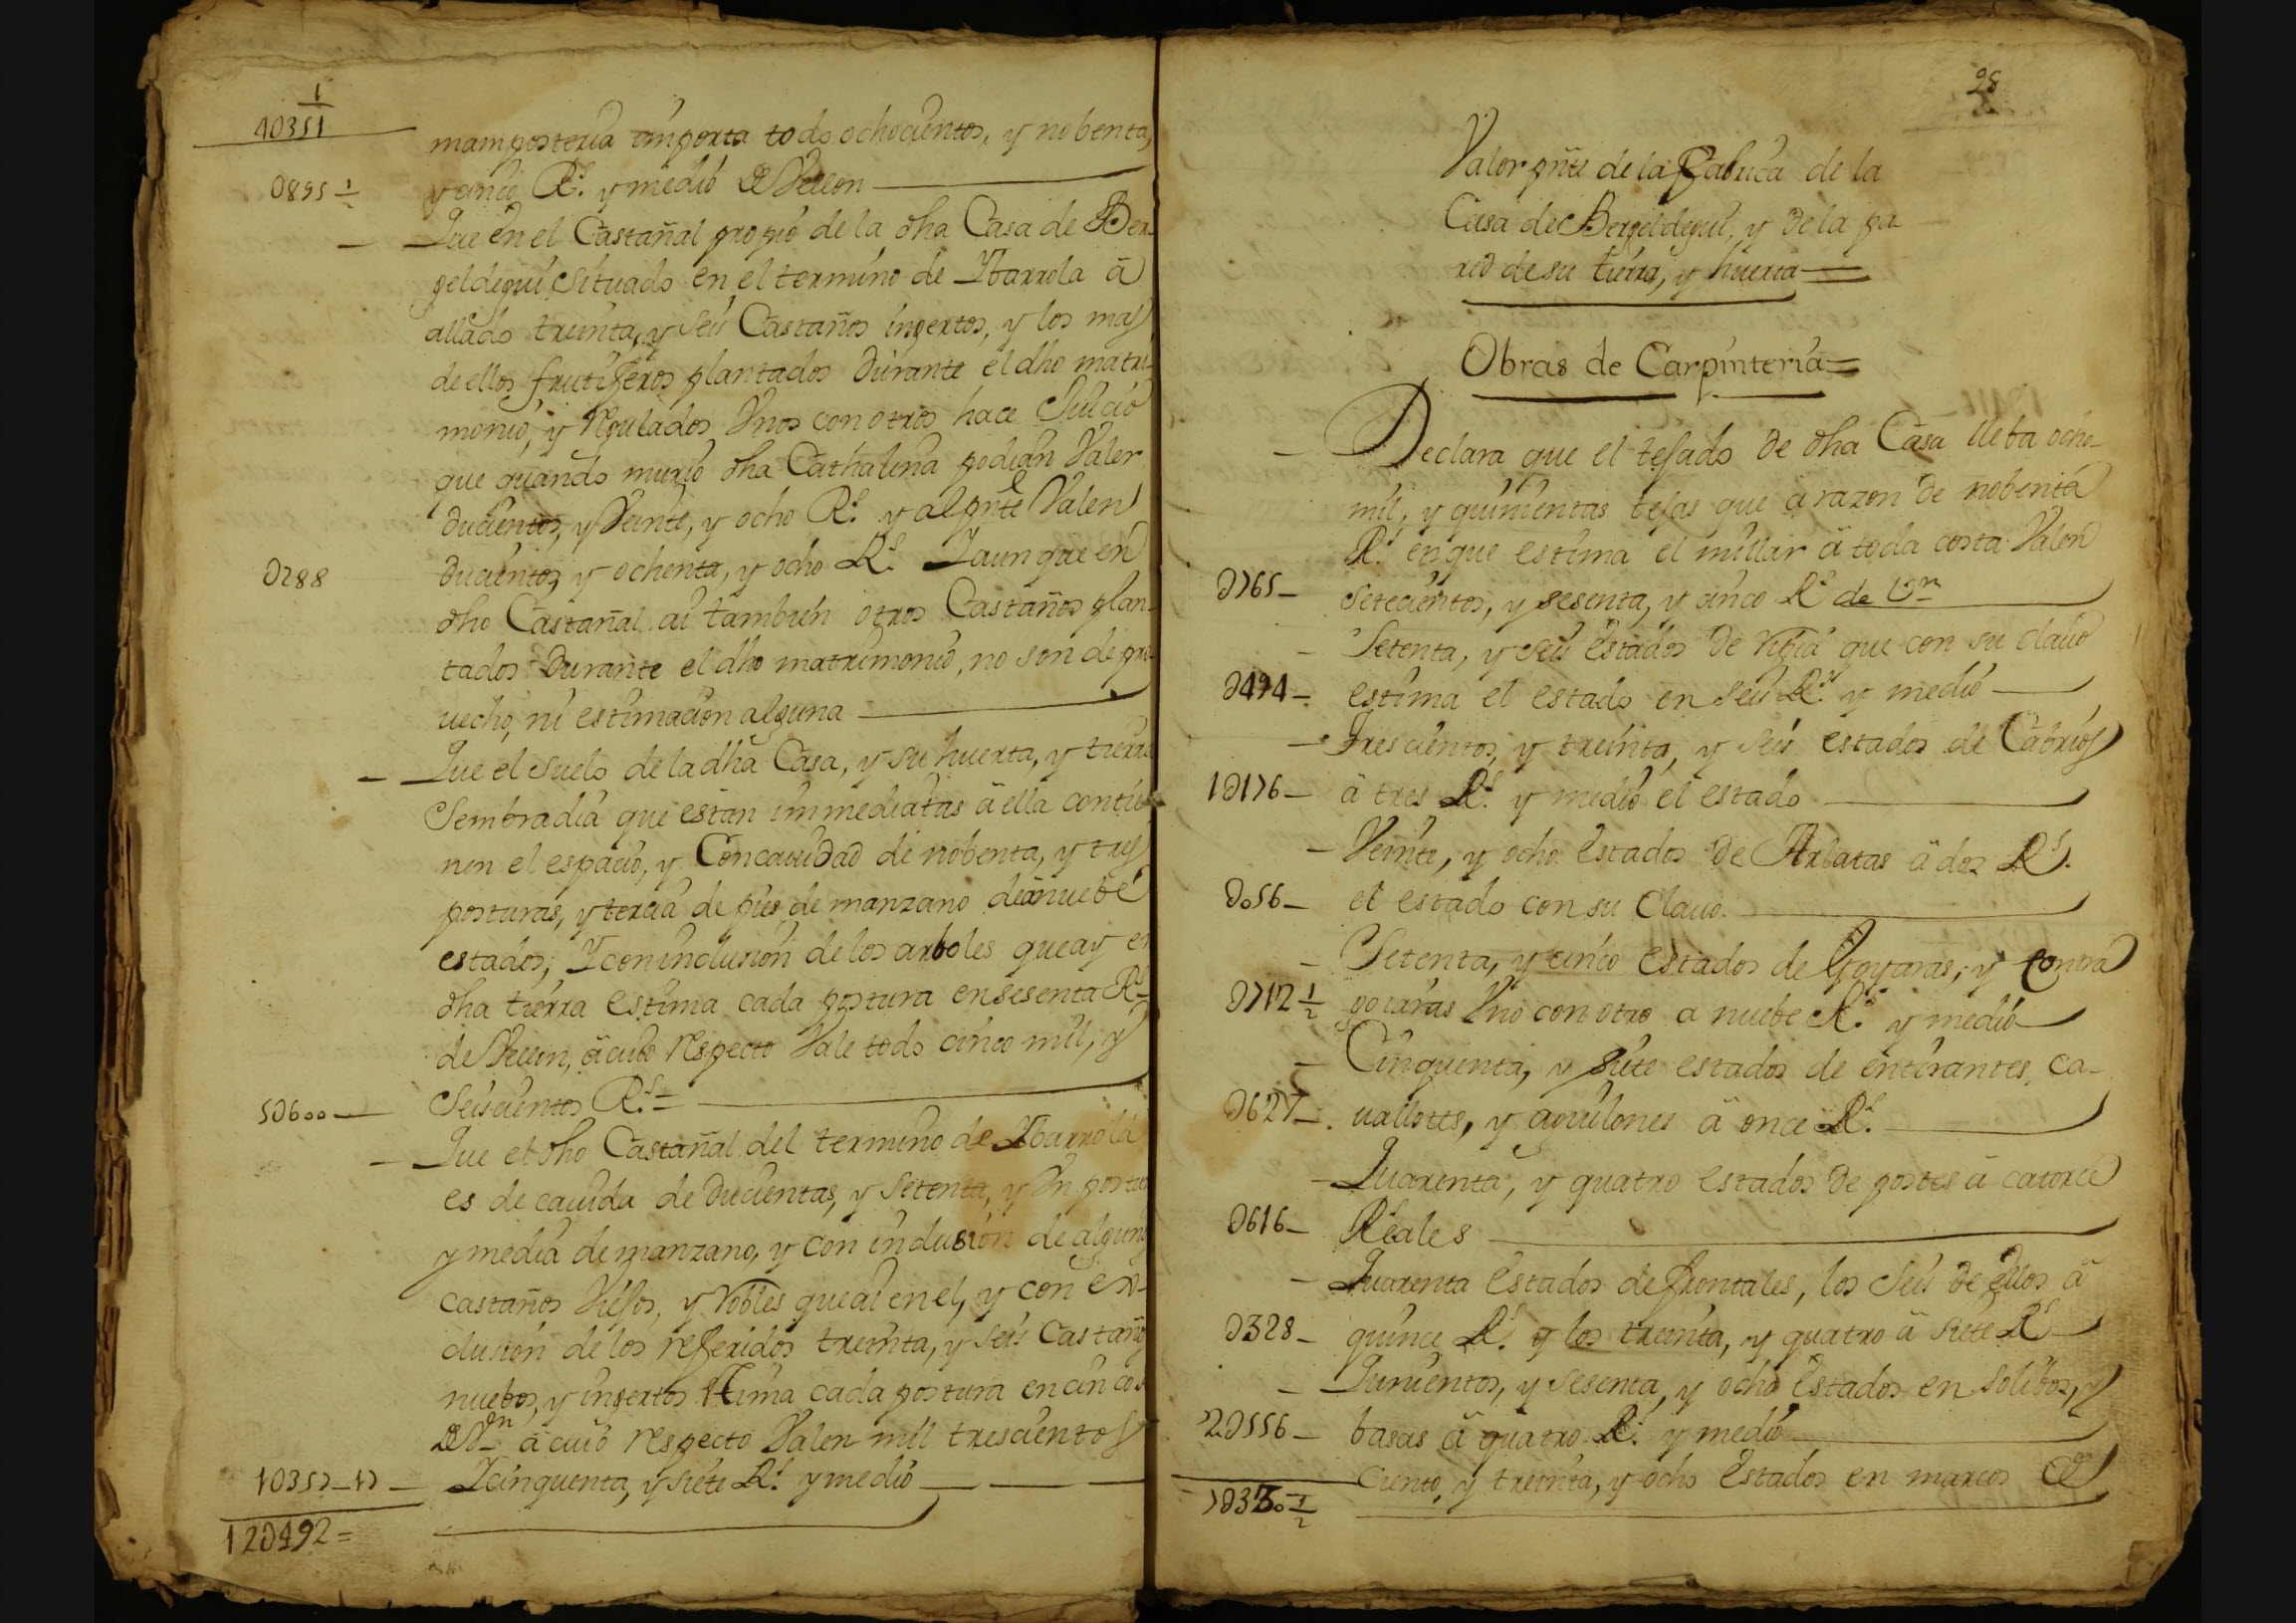 1
4D351
mamposteria importa todo ochocientos, y nobenta,
D895 1/2 y cinco Rs. y medio de Vellon
Que en el Castañal propio de la dha Casa de Ber-
geldegui situado en el termino de Ybarrola ã
allado treinta, y seis Castaños ingertos, y los mas
de ellos frutiferos plantados Durante el dho matri-
monio, y regulados Vnos con otros hace Juicio
que quando murio dha Cathalina podian Valer
ducientos, y Veinte, y ocho Rs. y al pnte Valen
D288 ducientos, y ochenta, y ocho Rs. Y aunque en
dho Castañal ai tambien otros Castaños plan-
tados Durante el dho matrimonio, no son de pro-
uecho, ni estimacion alguna
Que el suelo de la dha Casa, y su huerta, y tierra
Sembradia que estan immediatas ã ella contie-
nen el espacio, y Concauidad de nobenta, y tres
posturas, y tercia de pies de manzano de ã nuebe
estados; Y con inclusion de los arboles que ay en
dha tierra estima cada postura en sesenta Rs
de Vellon, ã cuio respecto Vale todo cinco mil, y
5D600 Seiscientos Rs. =
Que el dho Castañal del termino de Ybarrola
es de cauida de ducientas, y setenta, y Vn postura
y media de manzano, y con inclusion de algunos
castaños Viejos, y robles que ai en el, y con ex-
clusion de los referidos treinta, y seis Castaños
nuebos, y ingertos estima cada postura en cinco
de Vn ã cuio respecto Valen mil trescientos
1D357-17 Y cinquenta, y siete Rs. y medio
12D492 =
28
Valor pnte de la Fabrica de la
Casa de Bergeldegui, y de la pa-
red de su tierra, y huerta =
Obras de Carpinteria =
Declara que el tejado de dha Casa lleba ocho
mil, y quinientas tejas que ã razon de nobenta
Rs. en que estima el millar ã toda costa Valen
D765 Setecientos, y sesenta, y cinco Rs de Von
Setenta, y seis estados de ripia que con su clauo
D494 estima el estado en seis Rs. y medio
Trescientos, y treinta, y seis estados de Cabrios
1D176 ã tres Rs. y medio el estado
Veinte, y ocho estados de Arlatas ã dos Rs.
D056 el estado con su Clauo
Setenta, y cinco estados de Goyaras, y contra
D712 1/2 goiaras Vno con otro a nuebe Rs. y medio
Cinquenta, y siete estados de entirantes, ca-
D627 uallotes, y aguilones ã once Rs.
Quarenta, y quatro estados de postes ã catorce
D616 Reales
Quarenta estados de frontales, los seis de ellos ã
D328 quince Rs. y los treinta, y quatro ã siete Rs
Quinientos, y sesenta, y ocho estados en solibos, y
2D556 basas ã quatro Rs. y medio
Ciento, y treinta, y ocho estados en marcos de
7D330 1/2